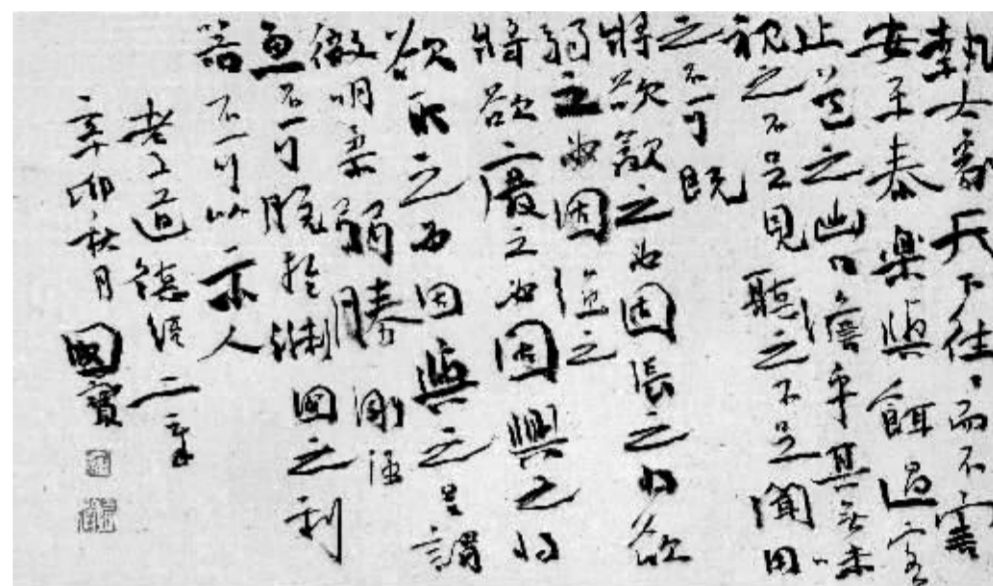 執大象天下往〻而不害
安平泰樂與餌過客
止道之出口澹乎其無味
視之不足見聽之不足聞用
之不可既
將欲歙之必固張之將欲
弱之必固強之
將欲廢之必固興之將
欲取之必固與之是謂
微明柔弱勝剛強
魚不可脫於淵國之利
器不可以示人
老子道德經二章
辛卯秋月國寶